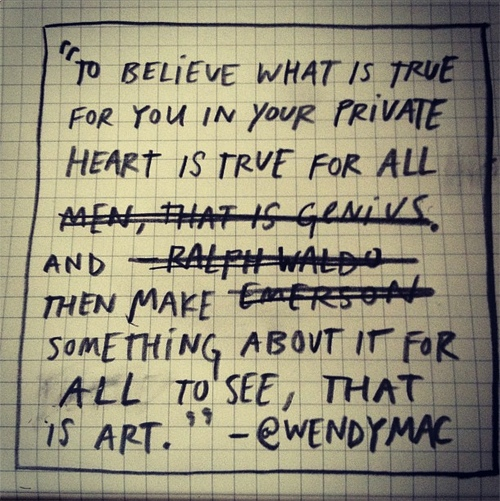 "TO BELIEVE WHAT IS TRUE
FOR YOU IN YOUR PRIVATE
HEART IS TRUE FOR ALL
MEN, THAT IS GENIUS.
AND RALPH WALDO
THEN MAKE EMERSON
SOMETHING ABOUT IT FOR
ALL TO SEE, THAT
IS ART." -@WENDYMAC